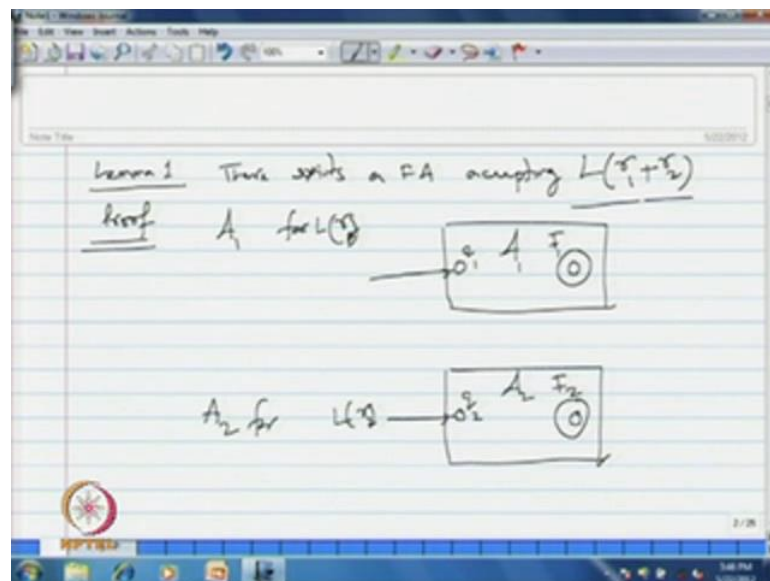 Note1 - Windows Journal
File Edit View Insert Actions Tools Help
Note Title
5/22/2012
Lemma 1 There exists a FA accepting L(r₁+r₂)
Proof A₁ for L(r₁)
q₁ A₁ F₁
A₂ for L(r₂)
q₂ A₂ F₂
2/25
NPTEL
5:48 PM
5/22/2012